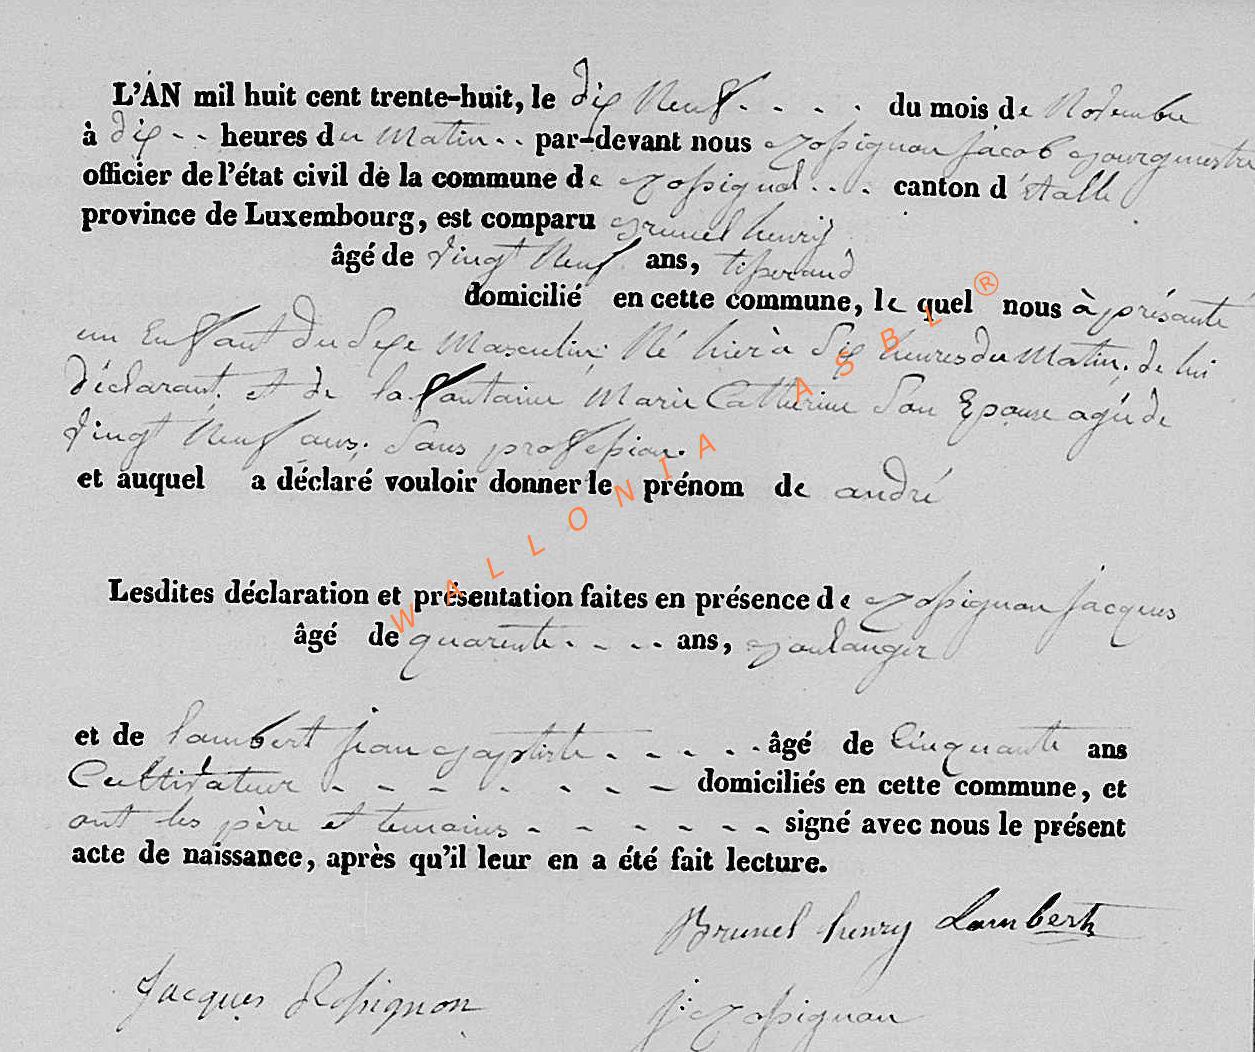 L'AN mil huit cent trente-huit, le dix Neuf - - - - du mois de Novembre
à dix - - heures du Matin - - par-devant nous Rossignon jacob Bourgmestre
officier de l'état civil de la commune de Rossignol - - - canton d'Etalle
province de Luxembourg, est comparu Brunel henry
âgé de vingt Neuf ans, tisserand
domicilié en cette commune, le quel nous à présanté
un Enfant du Sexe Masculin; Né hier à Six heures du Matin, de lui
déclarant, et de la fontaine Marie Catherine Son Epouse agée de
vingt Neuf ans, Sans profession.
et auquel a déclaré vouloir donner le prénom de andré
Lesdites déclaration et présentation faites en présence de Rossignon jacques
âgé de quarente - - - - ans, Boulanger
et de lambert jean Baptiste - - - - - âgé de Cinquante ans
Cultivateur - - - - - - - domiciliés en cette commune, et
ont les père et temoins - - - - - - signé avec nous le présent
acte de naissance, après qu'il leur en a été fait lecture.
Brunel henry Lambert
Jacques Rossignon
j: Rossignon
WALLONIA ASBL ®